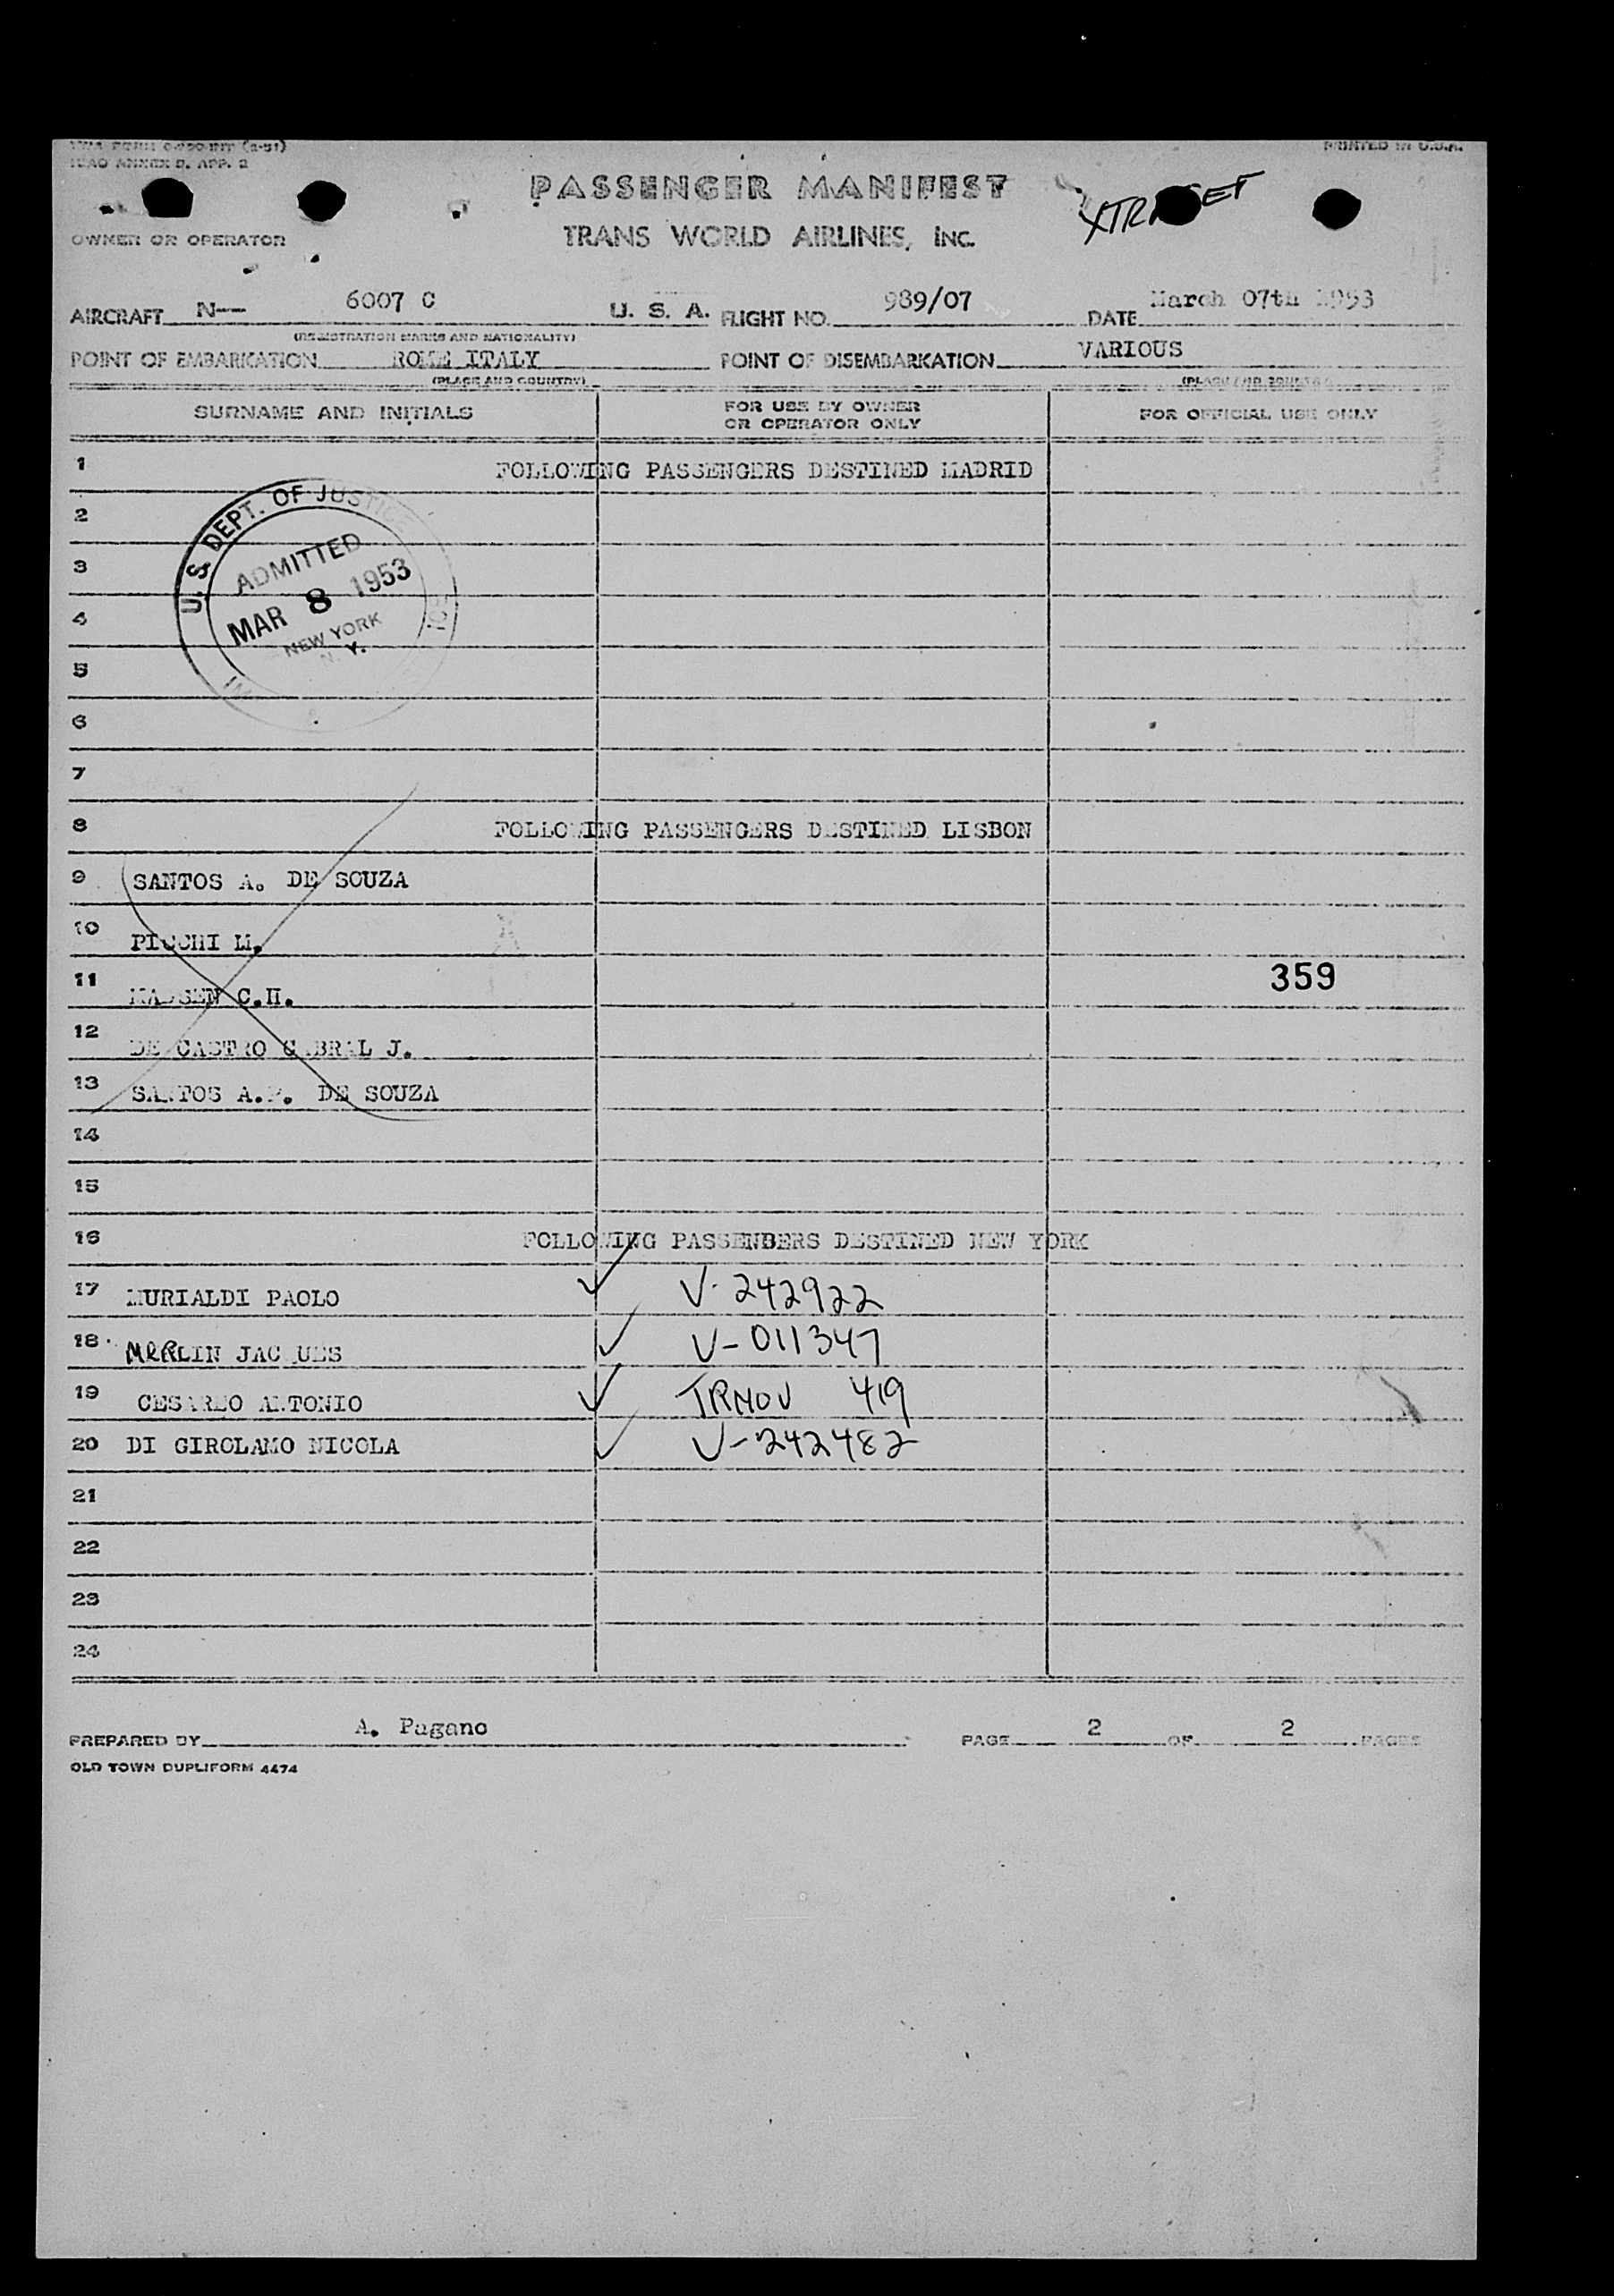 ICAO ANNEX 9, APP. 2
PRINTED IN U.S.A.
PASSENGER MANIFEST
XTRA SET
OWNER OR OPERATOR
TRANS WORLD AIRLINES, INC.
AIRCRAFT N-- 6007 C U. S. A. FLIGHT NO. 989/07 DATE March 07th 1953
(REGISTRATION MARKS AND NATIONALITY)
POINT OF EMBARKATION ROME ITALY POINT OF DISEMBARKATION VARIOUS
(PLACE AND COUNTRY) (PLACE AND COUNTRY)
SURNAME AND INITIALS FOR USE BY OWNER OR OPERATOR ONLY FOR OFFICIAL USE ONLY
1 FOLLOWING PASSENGERS DESTINED MADRID
2
3
4
5
6
7
U. S. DEPT. OF JUSTICE
ADMITTED
MAR 8 1953
NEW YORK
N. Y.
8 FOLLOWING PASSENGERS DESTINED LISBON
9 SANTOS A. DE SOUZA
10 PICCHI M.
11 C.H. 359
12 DE CASTRO CABRAL J.
13 SANTOS A.P. DE SOUZA
14
15
16 FOLLOWING PASSENBERS DESTINED NEW YORK
17 MURIALDI PAOLO ✓ V-242922
18 MERLIN JACQUES ✓ V-011347
19 CESAREO ANTONIO ✓ 419
20 DI GIROLAMO NICOLA ✓ V-242482
21
22
23
24
PREPARED BY A. Pagano PAGE 2 OF 2 PAGES
OLD TOWN DUPLIFORM 4474